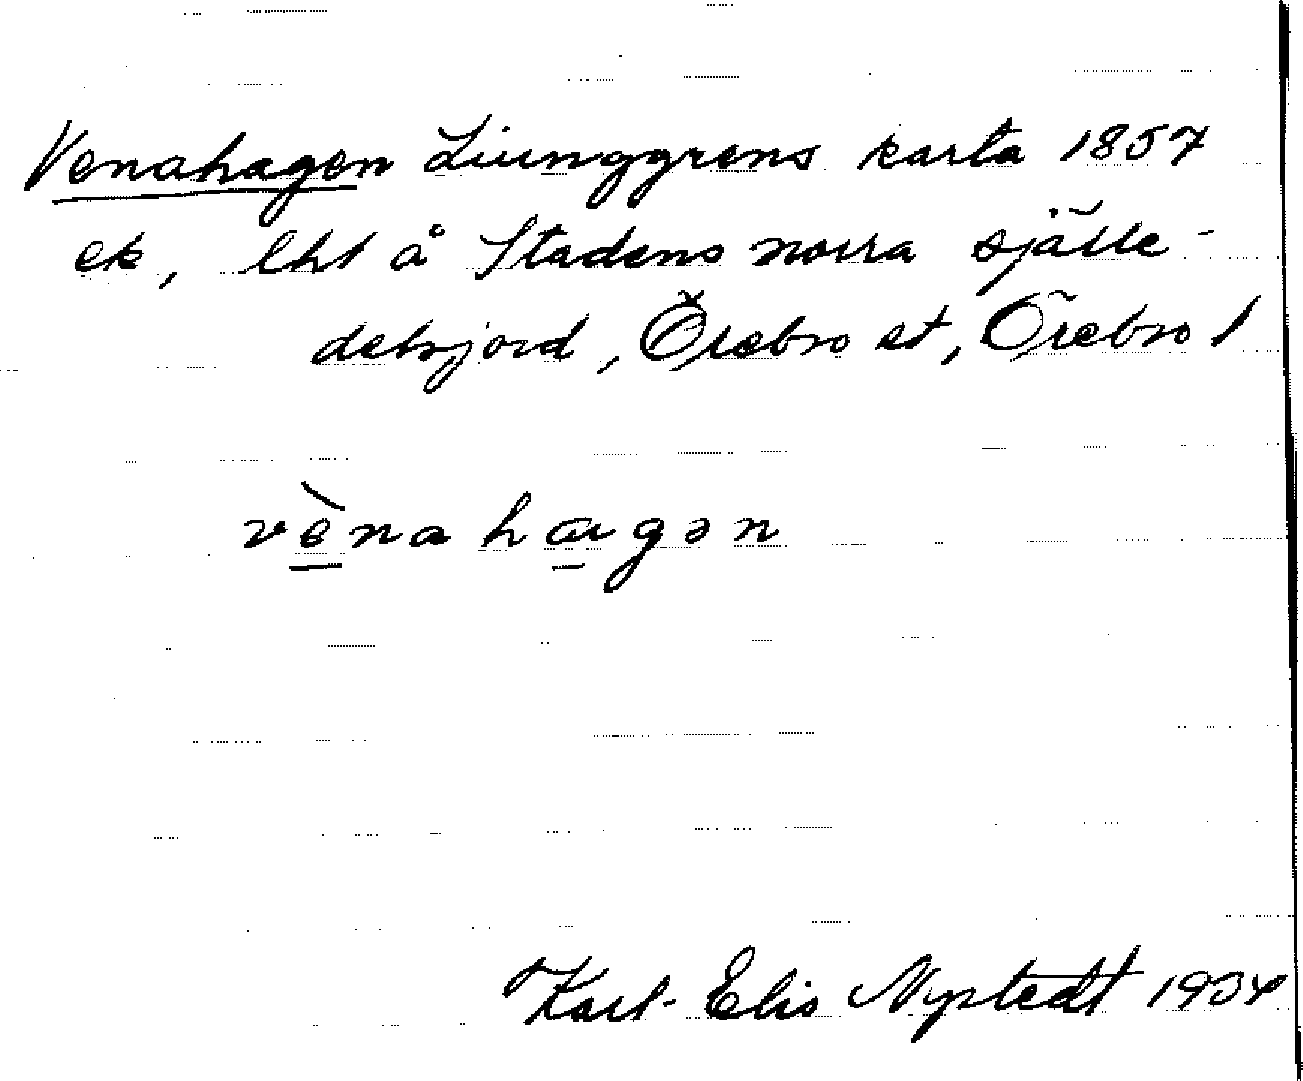 Venahagen Ljunggrens karta 1857
ek, lht å Stadens norra själle-
delsjord, Örebro st, Örebro l
vènahagən
Karl-Elis Nystedt 1934